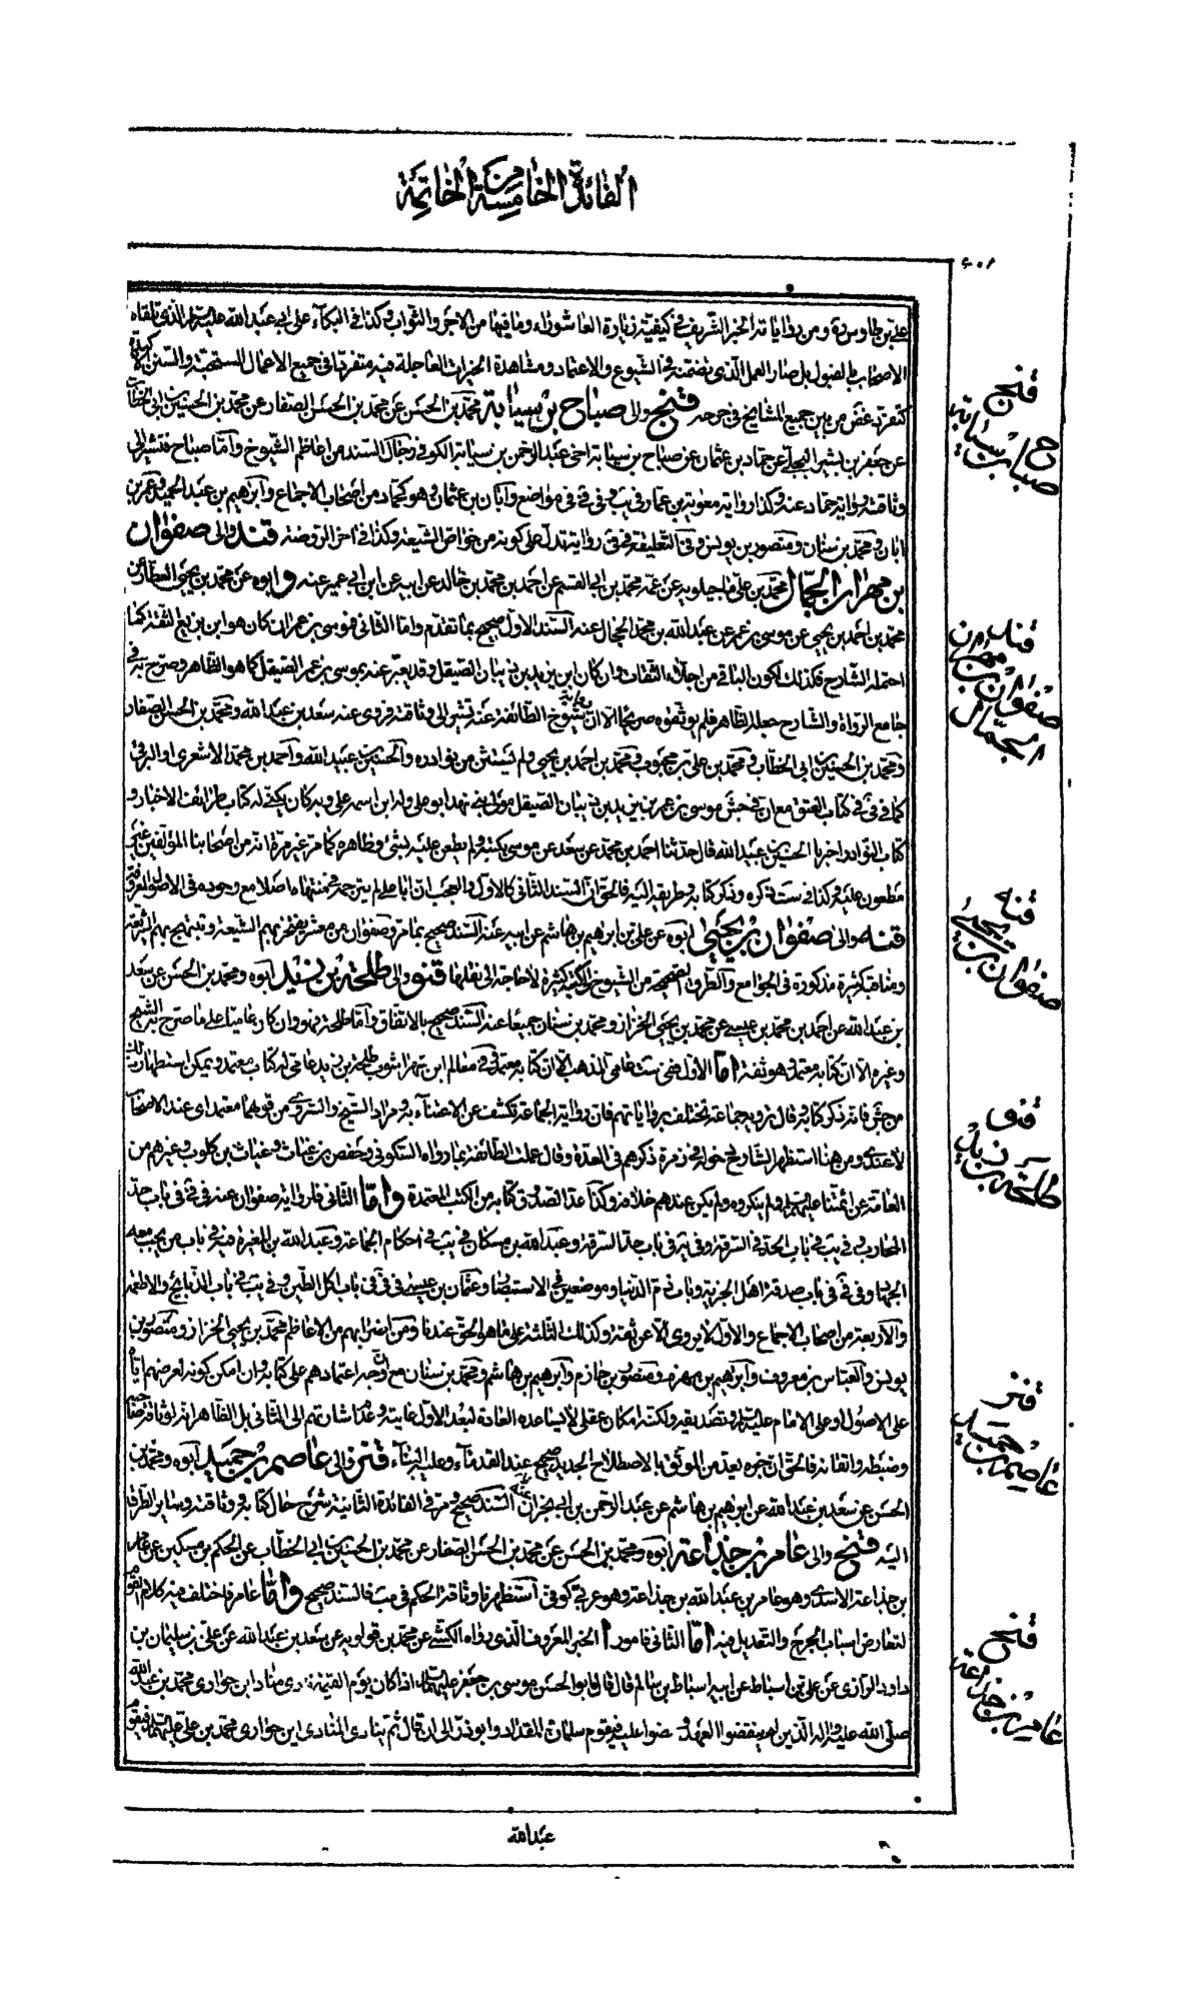 الفائدة الخامسة من الخاتمة
٦٠١
على بن طاوس ره ومن رواياته الخبر الشريف فى كيفية زيارة العاشوراء وما فيها من الاجر والثواب وكذا فى البكاء على ابى عبد الله عليه السلام الذى تلقاه
الاصحاب بالقبول بل صار العمل الذى تضمنه فى الشيوع والاعتماد ومشاهدة الخيرات العاجلة فيه متفردا فى جميع الاعمال المستحبة والسنن الاكيدة
كتفرد عن بين جميع المشايخ فى جرحه قنج والى صباح بن سيابة محمد بن الحسن عن محمد بن الحسن الصفار عن محمد بن الحسين بن ابى الخطاب
عن جعفر بن بشير البجلى عن حماد بن عثمان عن صباح بن سيابة اخى عبد الرحمن بن سيابة الكوفى ورجال السند من اعاظم الشيوخ واما صباح فتشير الى
وثاقته رواية حماد عنه وكذا رواية معوية بن عمار فى يب وفى فى فى مواضع وابان بن عثمان وهو كحماد من اصحاب الاجماع وابراهيم بن عبد الحميد وعمر بن
ابان ومحمد بن سنان ومنصور بن يونس وفى التعليقة فى رواية تدل على كونه من خواص الشيعة وكذا فى اخر الروضة قند والى صفوان
بن مهران الجمال محمد بن على ماجيلويه عن عمه محمد بن ابى القسم عن احمد بن محمد بن خالد عن ابيه عن ابن ابى عمير عنه وابوه عن محمد بن يحيى العطار عن
محمد بن احمد بن يحيى عن موسى بن عمر عن عبد الله بن محمد الحجال عنه السند الاول صحيح بما تقدم واما الثانى فموسى بن عمر ان كان هو ابن بزيع الثقة كما
احتمله الشارح فكذلك لكون الباقى من اجلاء الثقات وان كان ابن يزيد بن ذبيان الصيقل وقد يعبر عنه بموسى بن عمر الصيقل كما هو الظاهر وصرح به فى
جامع الرواة والشارح جعله الظاهر فلم يوثقوه صريحا الا ان رواية شيوخ الطائفة عنه تشير الى وثاقته فروى عنه سعد بن عبد الله ومحمد بن الحسن الصفار
ومحمد بن الحسين بن ابى الخطاب ومحمد بن على بن محبوب ومحمد بن احمد بن يحيى ولم يستثن من نوادره والحسين بن عبيد الله واحمد بن محمد الاشعرى او البرقى
كما فى فى كتاب العتق مع ان فى جش موسى بن عمر بن يزيد بن ذبيان الصيقل مولى بنى نهد ابو على وله ابن اسمه على وبه كان يكنى له كتاب طرائف الاخبار و
كتاب النوادر اخبرنا الحسين بن عبيد الله قال حدثنا احمد بن محمد عن سعد عن موسى بكتبه ولم يطعن عليه بشئ وظاهره كما مر غير مرة انه من اصحابنا المؤلفين غير
مطعون عليه وكذا فى ست ذكره وذكر كتابه وطريقه اليه فالحق ان السند الثانى كالاول والعجب ان ابا على لم يترجمه فى منتهاه اصلا مع وجوده فى الاصول المعروفة
قنه والى صفوان بن يحيى ابوه عن على بن ابراهيم بن هاشم عن ابيه عنه السند صحيح بما مر وصفوان من معشر يفتخر بهم الشيعة وتبتهج بهم الشريعة
ومناقبه كثيرة مذكورة فى الجوامع والطرق الصحيحة من الشيوخ الى كتبه كثيرة لا حاجة الى نقلها قنو والى طلحة بن زيد ابوه ومحمد بن الحسن عن سعد
بن عبد الله عن احمد بن محمد بن عيسى عن محمد بن يحيى الخزاز ومحمد بن سنان جميعا عنه السند صحيح بالاتفاق واما طلحة فهو وان كان عاميا على ما صرح به الشيخ
وغيره الا ان كتابه معتمد وهو ثقة اما الاول ففى ست عامى المذهب الا ان كتابه معتمد وفى معالم ابن شهراشوب طلحة بن زيد عامى له كتاب معتمد ويمكن استظهار ذلك
من جش فانه ذكر كتابه وقال يرويه جماعة تختلف برواياتهم فان رواية الجماعة تكشف عن الاعتناء به ومراد الشيخ والسروى من قولهما معتمد اى عند الاصحاب
لا عندى ومن هنا استظهر الشارح دخوله فى زمرة ذكرهم فى العدة وقال عملت الطائفة بما رواه السكونى وحفص بن غياث وغياث بن كلوب وغيرهم من
العامة عن ائمتنا عليهم السلام ولم ينكروه ولم يكن عندهم خلافه وكذا عد الصدوق كتابه من الكتب المعتمدة واما الثانى فلرواية صفوان عنه فى فى فى باب حد
المحارب وفى يب فى باب الحد فى السرقة وفى فى باب حد السرقة وعبد الله بن مسكان فى يب فى احكام الجماعة وعبد الله بن المغيرة فيه فى باب من يجب معه
الجهاد وفى فى باب صدقة اهل الجزية وباب ذم الدنيا وموضعين فى الاستبصار وعثمان بن عيسى فى فى فى باب اكل الطين وفى يب فى باب الذبائح والاطعمة
والاربعة من اصحاب الاجماع والاول لا يروى الا عن ثقة وكذلك الثلثة على ما هو الحق عندنا ومن اضرابهم من الاعاظم محمد بن يحيى الخزاز ومنصور بن
يونس والعباس بن معروف وابراهيم بن مهزم ومنصور بن حازم وابراهيم بن هاشم ومحمد بن سنان مع ان وجه اعتمادهم على كتابه وان امكن كونه لعرضهم اياه
على الاصول او على الامام عليه السلام وتصديقه ولكنه امكان عقلى لا يساعده العادة لبعد الاول غايته وعدم اشارتهم الى الثانى بل الظاهر انه لوثاقة صاحبه
وضبطه واتقانه فالحق ان خبره يعد من الموثق بالاصطلاح الجديد صحيح عند القدماء وعليه البناء قنز والى عاصم بن حميد ابوه ومحمد بن
الحسن عن سعد بن عبد الله عن ابراهيم بن هاشم عن عبد الرحمن بن ابى نجران عنه السند صحيح ومر فى الفائدة الثانية شرح حال كتابه ووثاقته وساير الطرق
اليه قنح والى عامر بن جذاعة ابوه ومحمد بن الحسن عن محمد بن الحسن الصفار عن محمد بن الحسين بن ابى الخطاب عن الحكم بن مسكين عن عامر
بن جذاعة الازدى وهو عامر بن عبد الله بن جذاعة وهو عربى كوفى استظهرنا وثاقة الحكم فى مب فالسند صحيح واما عامر فاختلف فيه كلام القوم
لتعارض اسباب الجرح والتعديل فيه اما الثانى فامور ا الخبر المعروف الذى رواه الكشى عن محمد بن قولويه عن سعد بن عبد الله عن على بن سليمان بن
داود الرازى عن على بن اسباط عن ابيه اسباط بن سالم قال قال ابو الحسن موسى بن جعفر عليهما السلام اذا كان يوم القيمة نادى مناد اين حوارى محمد بن عبد الله
صلى الله عليه واله الذين لم ينقضوا العهد ومضوا عليه فيقوم سلمان والمقداد وابوذر الى ان قال ثم ينادى المنادى اين حوارى محمد بن على عليهما السلام فيقوم
عبد الله
قنج
صباح بن سيابة
قند
صفوان بن مهران
الجمال
قنه
صفوان بن يحيى
قنو
طلحة بن زيد
قنز
عاصم بن حميد
قنح
عامر بن جذاعة